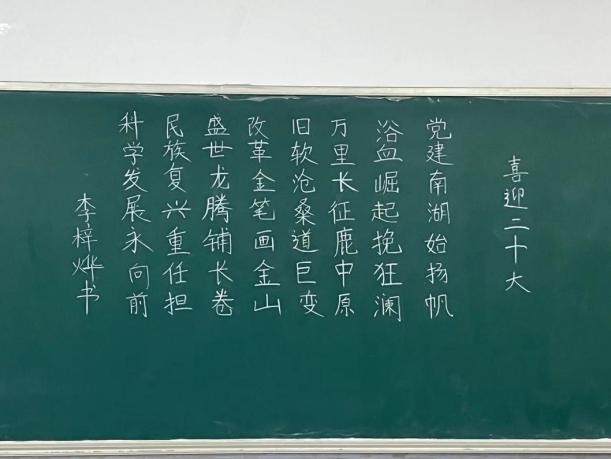 喜迎二十大
党建南湖始扬帆
浴血崛起挽狂澜
万里长征鹿中原
旧软沧桑道巨变
改革金笔画金山
盛世龙腾铺长卷
民族复兴重任担
科学发展永向前
李梓烨书